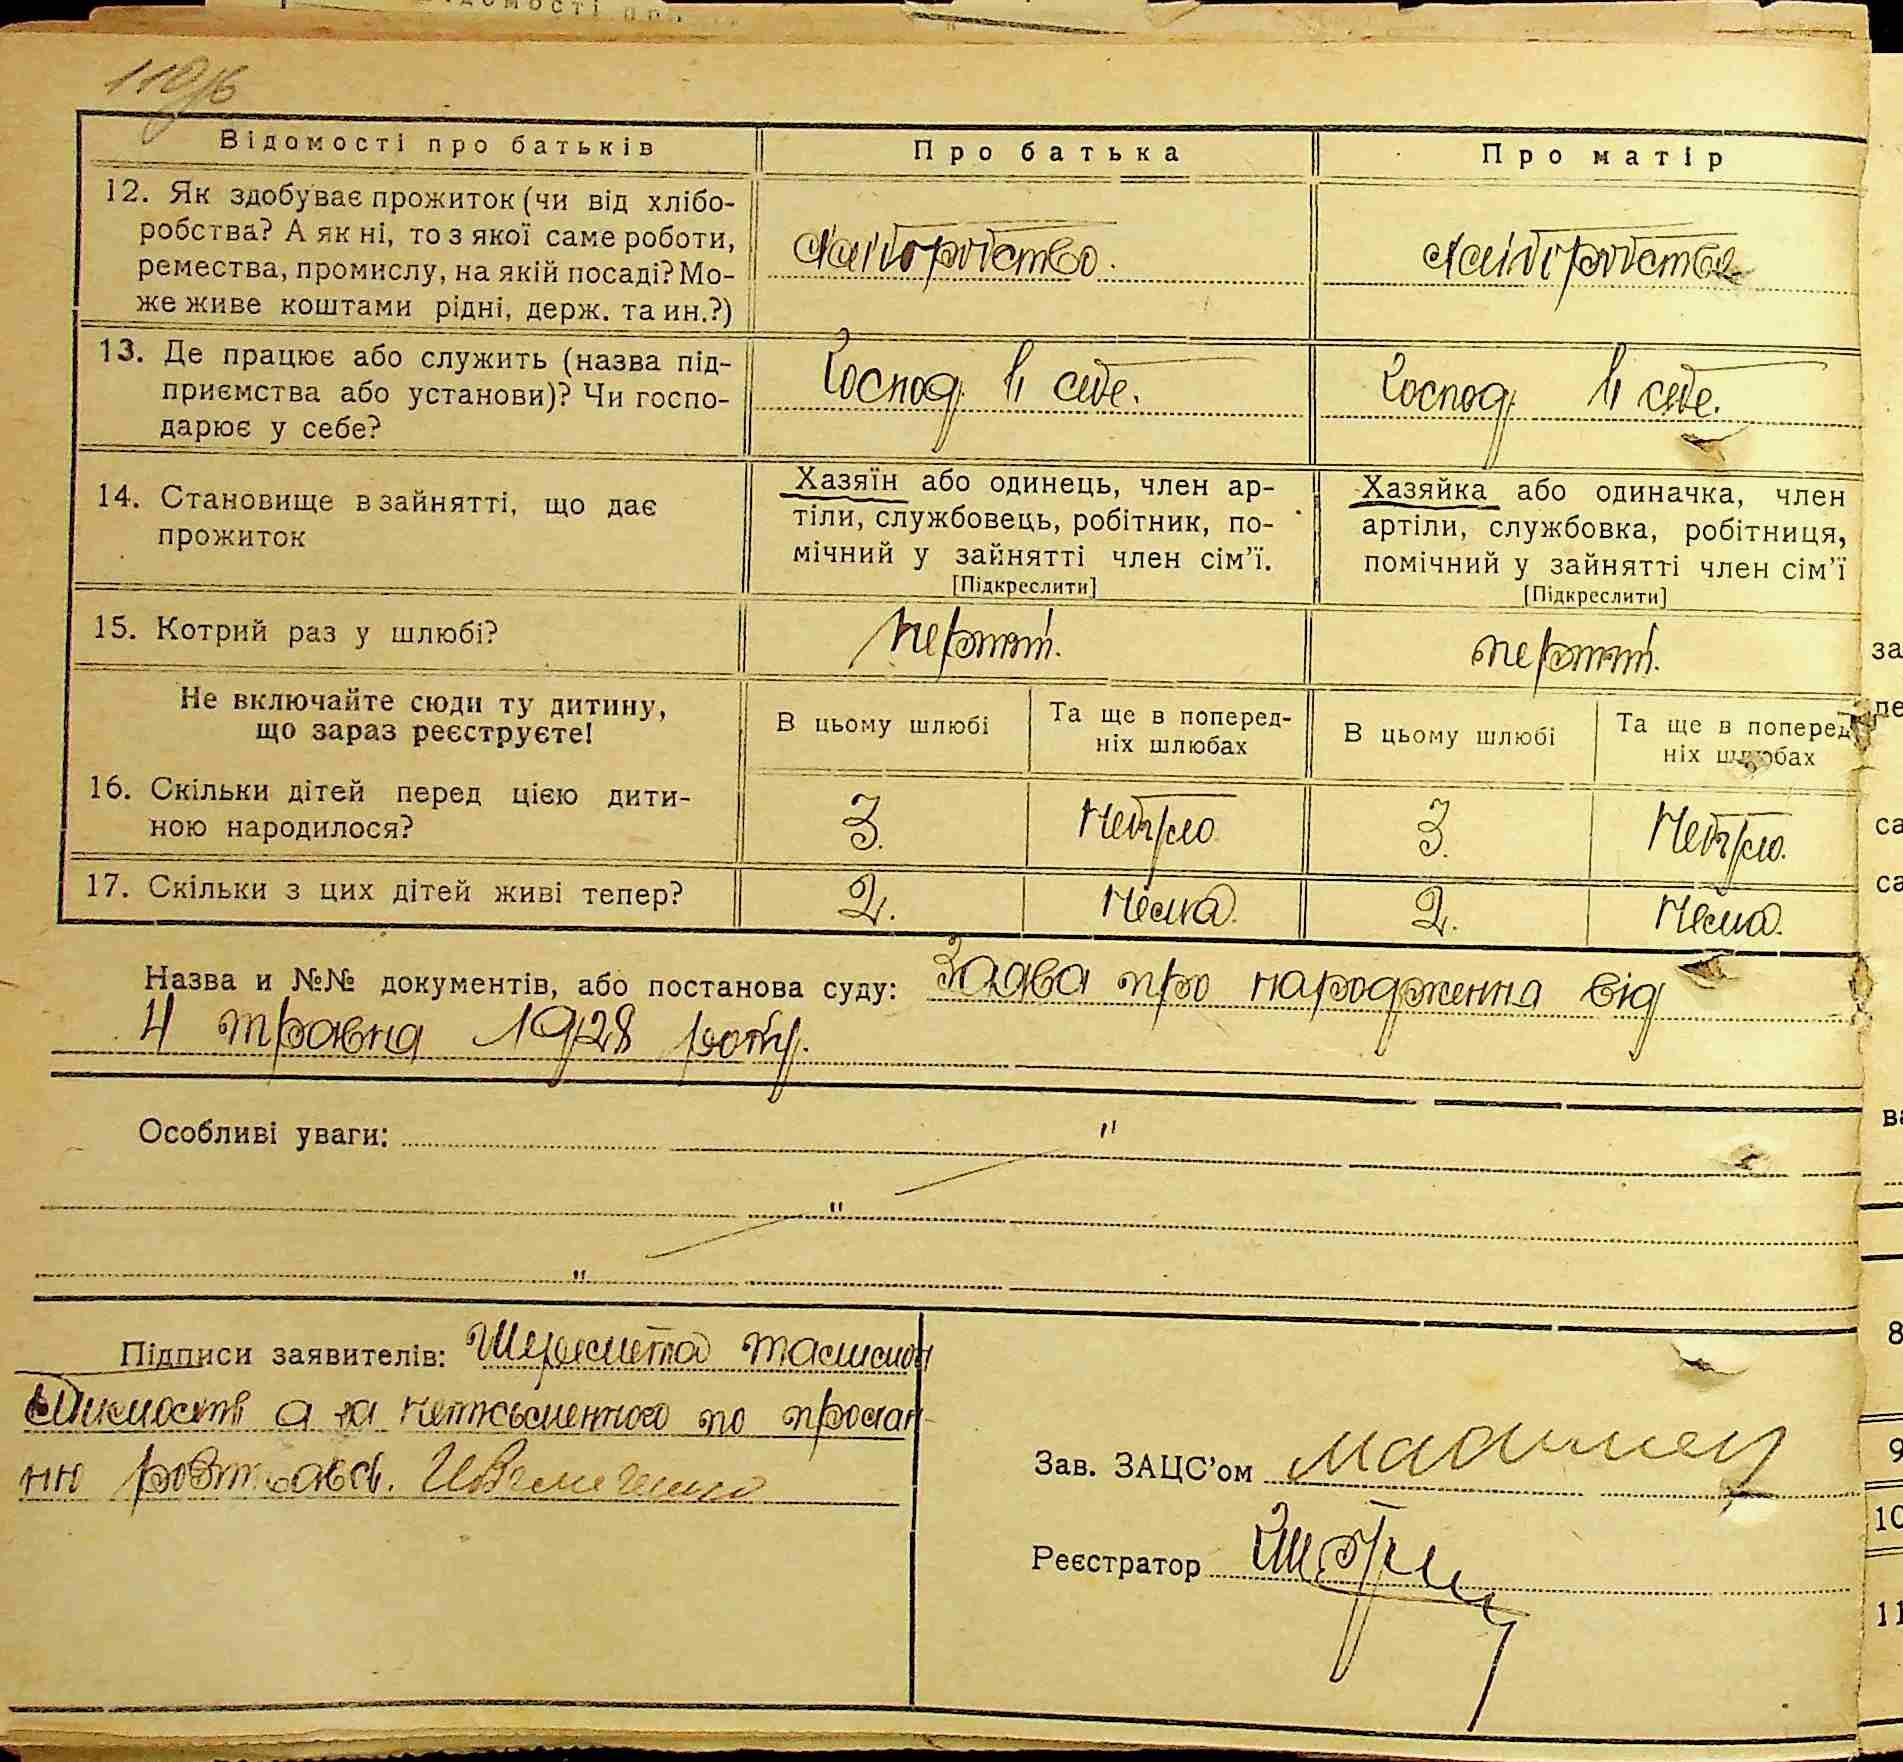 Відомості про батьків
Про батька
Про матір
12. Як здобуває прожиток (чи від хлібо-
робства? А як ні, то з якої саме роботи,
ремества, промислу, на якій посаді? Мо-
же живе коштами рідні, держ. та ин.?)
хліборобство.
хліборобство
13. Де працює або служить (назва під-
приємства або установи)? Чи госпо-
дарює у себе?
Господ. в себе.
Господ. в себе.
14. Становище в зайнятті, що дає
прожиток
Хазяїн або одинець, член ар-
тіли, службовець, робітник, по-
мічний у зайнятті член сім'ї.
[Підкреслити]
Хазяйка або одиначка, член
артіли, службовка, робітниця,
помічний у зайнятті член сім'ї
[Підкреслити]
15. Котрий раз у шлюбі?
перший.
перший.
Не включайте сюди ту дитину,
що зараз реєструєте!
В цьому шлюбі
Та ще в поперед-
ніх шлюбах
В цьому шлюбі
Та ще в поперед
ніх шлюбах
16. Скільки дітей перед цією дити-
ною народилося?
3.
небуло
3.
небуло.
17. Скільки з цих дітей живі тепер?
2.
нема.
2.
нема.
Назва и №№ документів, або постанова суду: Заява про народження від
4 травня 1928 року.
Особливі уваги: "
"
"
Підписи заявителів: Шеремета
а за неписьменного по прохан-
ню
Зав. ЗАЦС'ом
Реєстратор
за
пе
са
са
ва
8
9
10
11